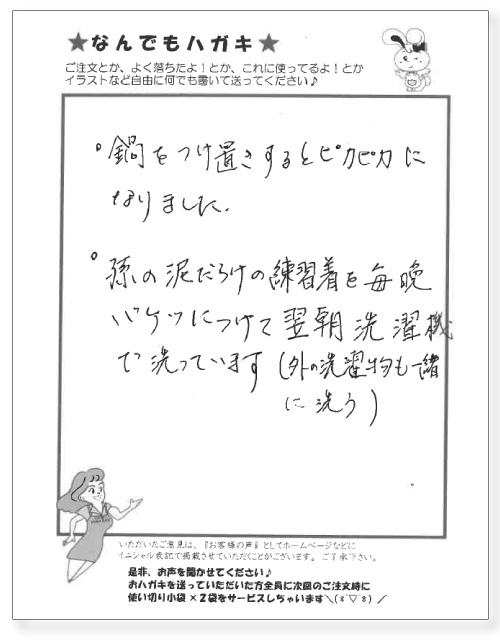 ★なんでもハガキ★
ご注文とか、よく落ちたよ！とか、これに使ってるよ！とか
イラストなど自由に何でも書いて送ってください♪
°鍋をつけ置きするとピカピカに
なりました.
°孫の泥だらけの練習着を毎晩
バケツにつけて翌朝洗濯機
で洗っています(外の洗濯物も一緒
に洗う)
いただいたご意見は、『お客様の声』としてホームページなどに
イニシャル表記で掲載させていただくことがございます。ご了承下さい。
是非、お声を聞かせてください♪
おハガキを送っていただいた方全員に次回のご注文時に
使い切り小袋×2袋をサービスしちゃいます＼(*´▽`*)／